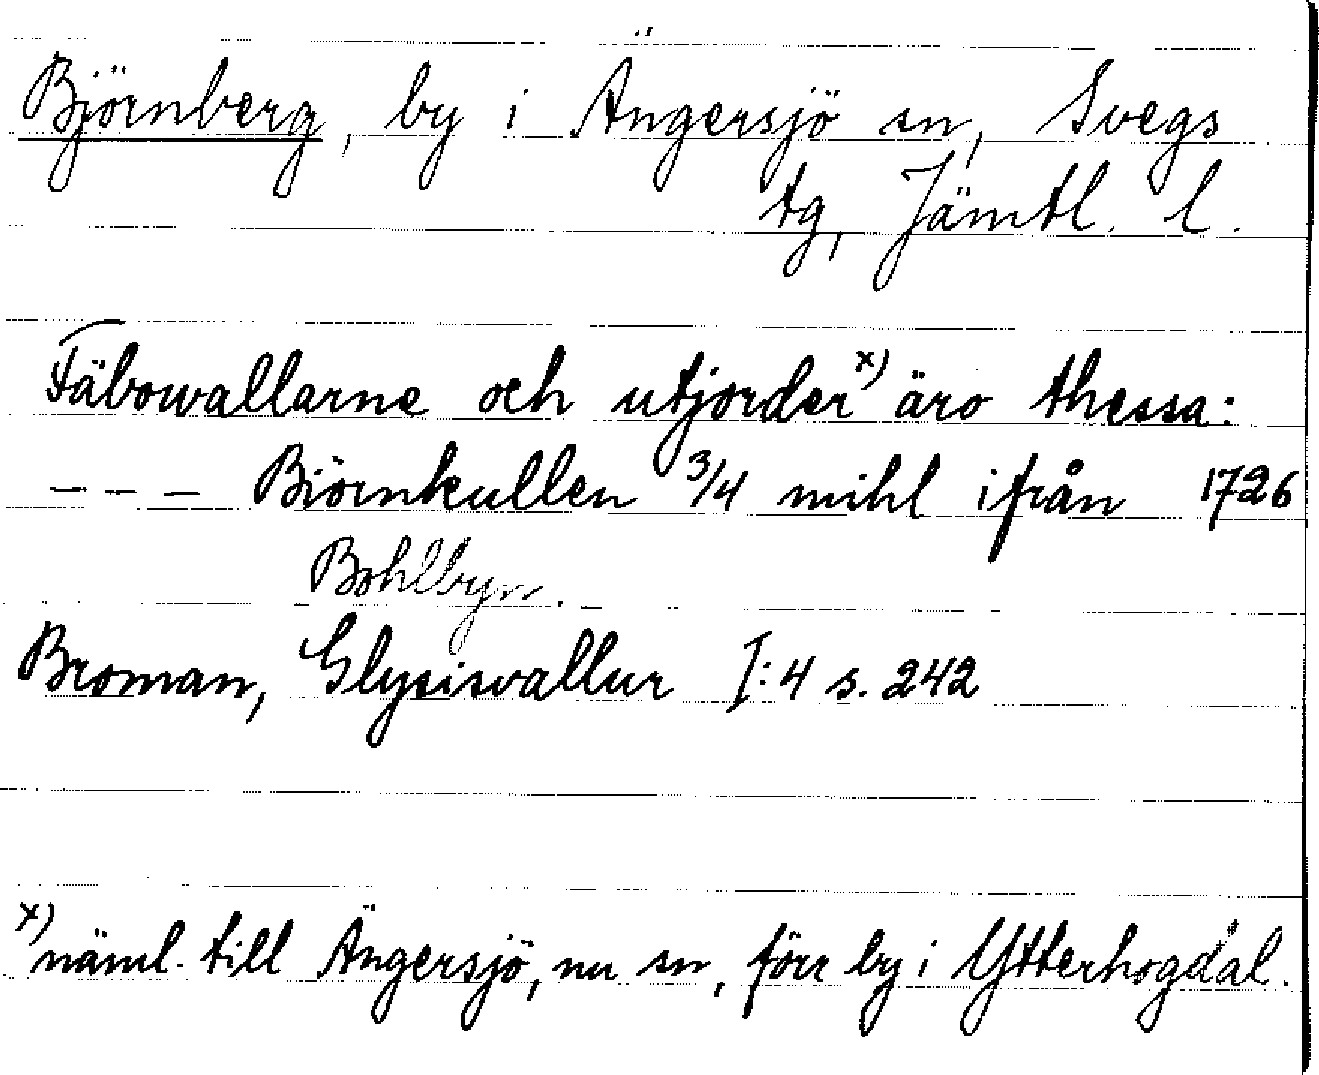 Björnberg, by i Ängersjö sn, Svegs
tg, Jämtl. l.
Fäbowallarne och utjorder x) äro thessa:
--- Biörnkullen 3/4 mihl ifrån 1726
Bohlbyn.
Broman, Glysisvallur I:4 s. 242
x) näml. till Ängersjö, nu sn, förr by i Ytterhogdal.